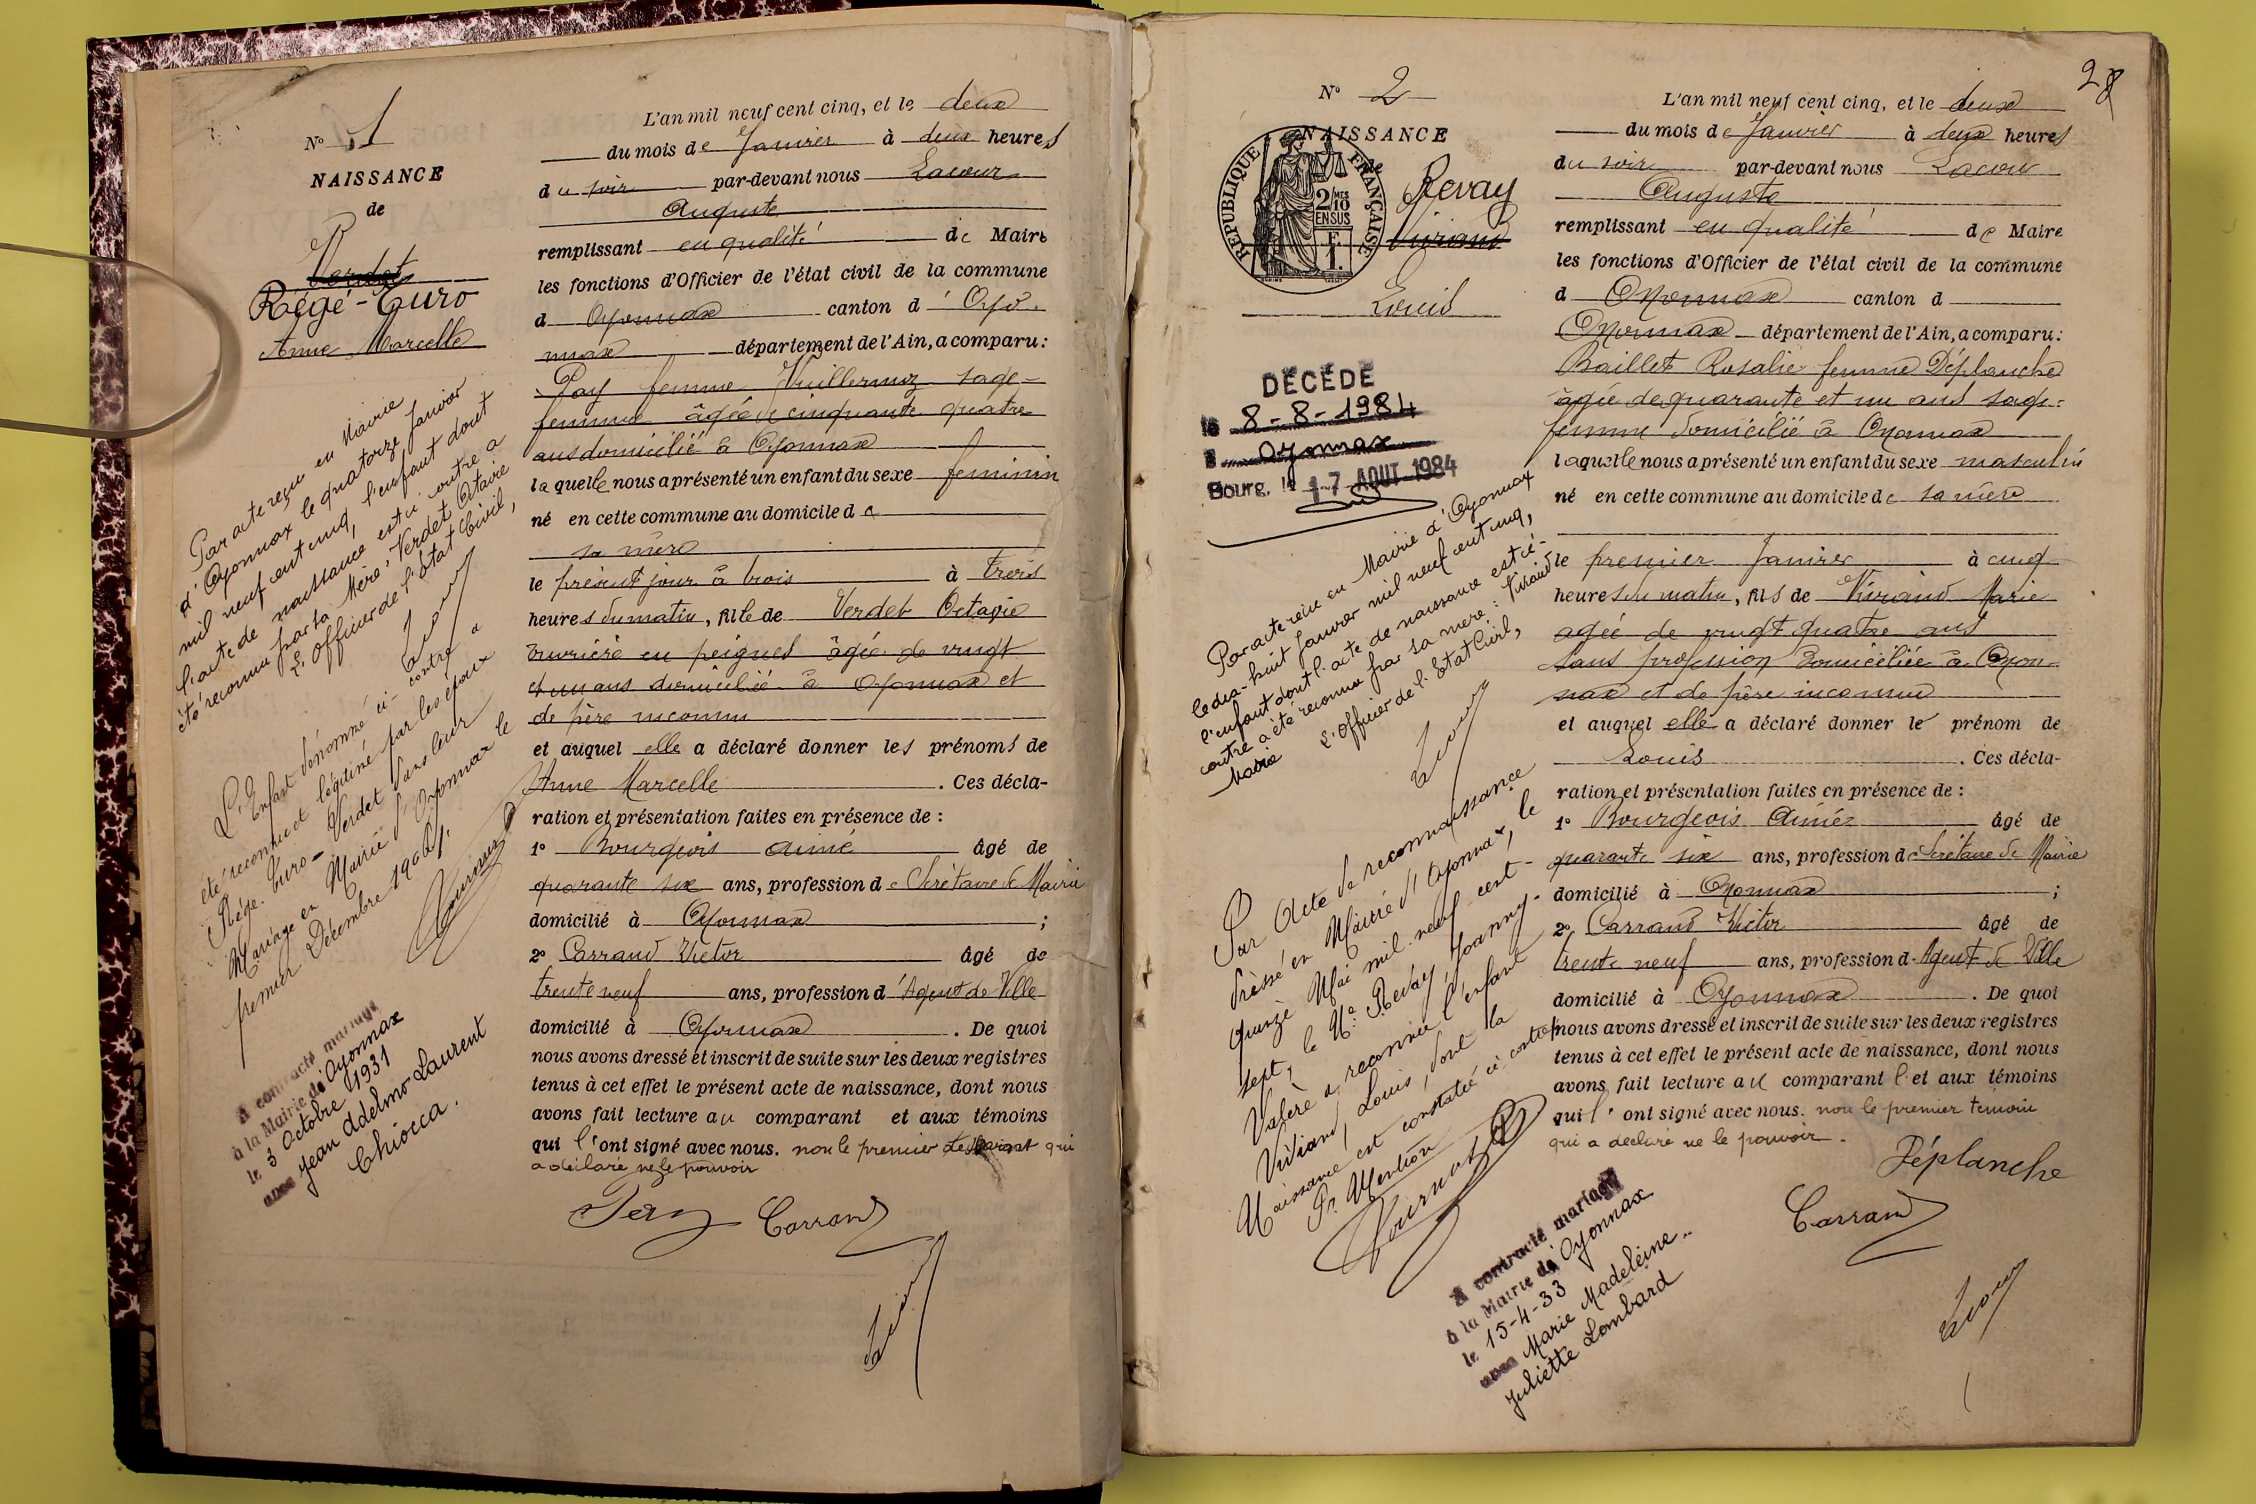 N° 1
NAISSANCE
de
Verdet
Régé-Turo
Anne Marcelle
Par acte reçu en Mairie
d'Oyonnax le quatorze Janvier
mil neuf cent cinq, l'enfant dont
l'acte de naissance est ci contre a
été reconnu par sa Mère, Verdet Octavie
L'Officier de l'Etat Civil,
L'Enfant dénommé ci-contre a
été reconnu et légitimé par les époux
Rége-Turo - Verdet dans leur
Mariage en Mairie d'Oyonnax le
premier Décembre 1906
A contracté mariage
à la Mairie de Oyonnax
le 3 Octobre 1931
avec Jean Adelmo Laurent
Chiocca.
L'an mil neuf cent cinq, et le deux
du mois de Janvier à deux heures
du soir par-devant nous Lacour
Auguste
remplissant en qualité de Maire
les fonctions d'Officier de l'état civil de la commune
d Oyonnax canton d' Oyo-
nnax département de l'Ain, a comparu:
femme Vuillermoz sage-
femme âgée de cinquante quatre
ans domicilié à Oyonnax
laquelle nous a présenté un enfant du sexe feminin
né en cette commune au domicile de
sa mère
le présent jour à trois à trois
heures du matin, fille de Verdet Octavie
ouvrière en peignes âgée de vingt
et un ans domiciliée à Oyonnax et
de père inconnu
et auquel elle a déclaré donner les prénoms de
Anne Marcelle . Ces décla-
ration et présentation faites en présence de :
1° Bourgeois Aimé âgé de
quarante six ans, profession de Secrétaire de Mairie
domicilié à Oyonnax ;
2° Carrand Victor âgé de
trente neuf ans, profession d'Agent de Ville
domicilié à Oyonnax . De quoi
nous avons dressé et inscrit de suite sur les deux registres
tenus à cet effet le présent acte de naissance, dont nous
avons fait lecture au comparant et aux témoins
qui l'ont signé avec nous. non le premier qui
a déclaré ne le pouvoir
Carrand
28
N° 2
NAISSANCE
de
REPUBLIQUE FRANÇAISE
2/10
EN SUS
Revay
Viviand
Louis
DÉCÉDÉ
le 8-8-1984
à Oyonnax
Bourg, le 17 AOUT 1984
Par acte reçu en Mairie d'Oyonnax
le dix-huit Janvier mil neuf cent cinq,
l'enfant dont l'acte de naissance est ci-
contre a été reconnu par sa mère: Viviand
Marie
L'Officier de l'Etat Civil,
Par Acte de reconnaissance
dressé en Mairie d'Oyonnax, le
quinze Mai mil neuf cent-
sept, le Mr. Revay, Joanny-
Valère a reconnu l'enfant
Viviand, Louis, dont la
Naissance est constatée ci-contre
Pr. Mention
A contracté mariage
à la Mairie de Oyonnax
le 15-4-33
avec Marie Madeleine-
Juliette Lombard
L'an mil neuf cent cinq, et le deux
du mois de Janvier à deux heures
du soir par-devant nous Lacour
Auguste
remplissant en qualité de Maire
les fonctions d'Officier de l'état civil de la commune
d Oyonnax canton d
Oyonnax département de l'Ain, a comparu:
Baillet Rosalie femme Déplanche
agée de quarante et un ans sage-
femme domicilié à Oyonnax
laquelle nous a présenté un enfant du sexe masculin
né en cette commune au domicile de sa mère
le premier Janvier à cinq
heures du matin, fils de Viviand Marie
agée de vingt quatre ans
sans profession domiciliée à Oyon-
nax et de père inconnu
et auquel elle a déclaré donner le prénom de
Louis . Ces décla-
ration et présentation faites en présence de :
1° Bourgeois Aimé âgé de
quarante six ans, profession de Secrétaire de Mairie
domicilié à Oyonnax ;
2° Carrand Victor âgé de
trente neuf ans, profession d Agent de Ville
domicilié à Oyonnax . De quoi
nous avons dressé et inscrit de suite sur les deux registres
tenus à cet effet le présent acte de naissance, dont nous
avons fait lecture au comparant et aux témoins
qui l'ont signé avec nous. non le premier temoin
qui a declaré ne le pouvoir.
Déplanche
Carrand